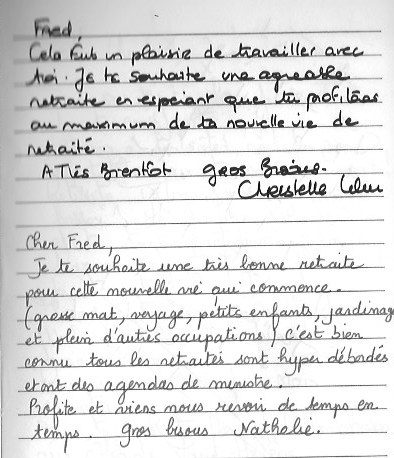 Fred,
Cela fut un plaisir de travailler avec
toi. Je te souhaite une agréable
retraite en espérant que tu profiteras
au maximum de ta nouvelle vie de
retraité.
A Très Bientôt gros Bisous.
Christelle
Cher Fred,
Je te souhaite une très bonne retraite
pour cette nouvelle vie qui commence.
(grosse mat, voyage, petits enfants, jardinage
et plein d'autres occupations) c'est bien
connu tous les retraités sont hyper débordés
et ont des agendas de ministre.
Profite et viens nous revoir de temps en
temps. gros bisous Nathalie.